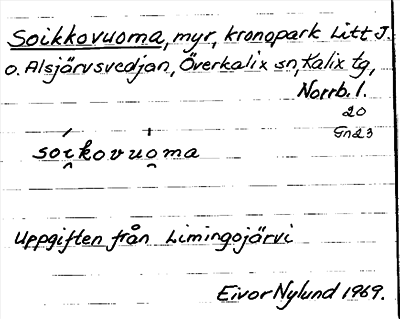 Soikkovuoma, myr, kronopark Litt J.
o. Alsjärvsvedjan, Överkalix sn, Kalix tg,
Norrb. l.
20
Gn23
soi̯kovuo̯ma
Uppgiften från Limingojärvi
Eivor Nylund 1969.